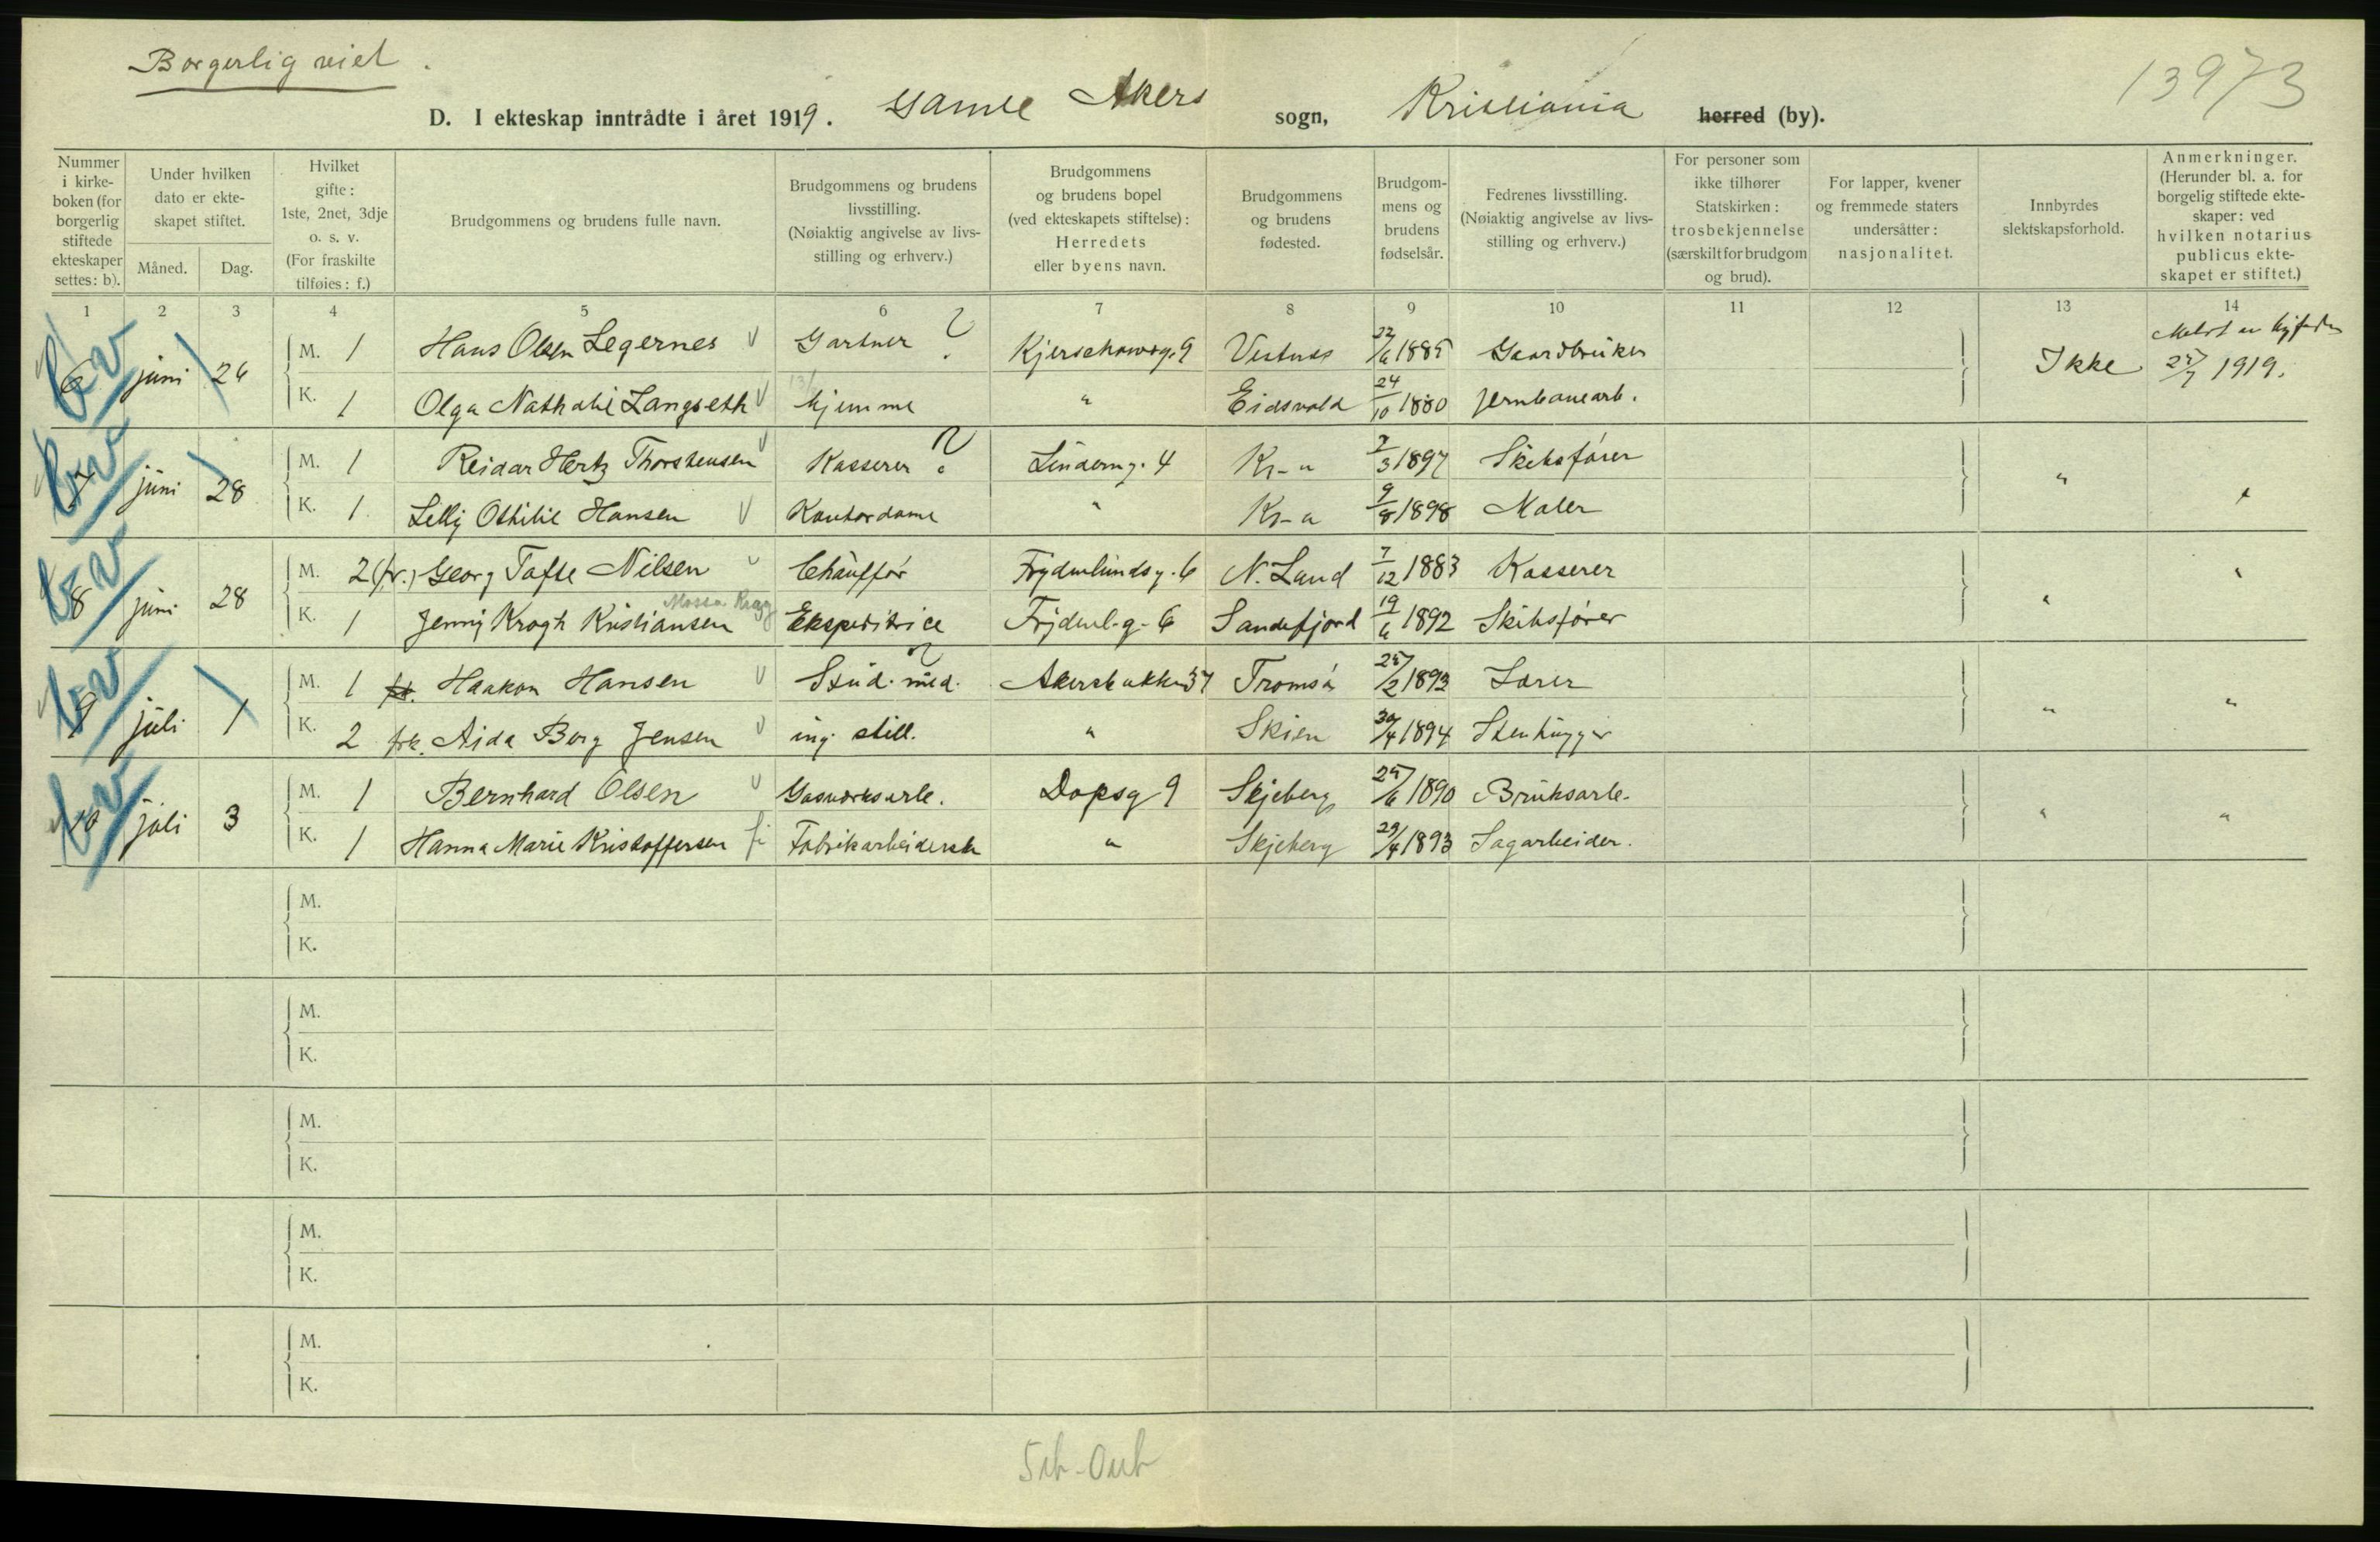 Borgerlig viet.
13973
D. I ekteskap inntrådte i året 1919. Gamle Akers sogn, Kristiania herred (by).
Nummer i kirkeboken (for borgerlig stiftede ekteskaper settes: b).
Under hvilken dato er ekteskapet stiftet.
Måned. Dag.
Hvilket gifte: 1ste, 2net, 3dje o. s. v. (For fraskilte tilføies: f.)
Brudgommens og brudens fulle navn.
Brudgommens og brudens livsstilling. (Nøiaktig angivelse av livsstilling og erhverv.)
Brudgommens og brudens bopel (ved ekteskapets stiftelse): Herredets eller byens navn.
Brudgommens og brudens fødested.
Brudgommens og brudens fødselsår.
Fedrenes livsstilling. (Nøiaktig angivelse av livsstilling og erhverv.)
For personer som ikke tilhører Statskirken: trosbekjennelse (særskilt for brudgom og brud).
For lapper, kvener og fremmede staters undersåtter: nasjonalitet.
Innbyrdes slektskapsforhold.
Anmerkninger. (Herunder bl. a. for borgelig stiftede ekteskaper: ved hvilken notarius publicus ekteskapet er stiftet.)
1 2 3 4 5 6 7 8 9 10 11 12 13 14
6 juni 26 M. 1 Hans Olsen Legernes Gartner ? Kjerschowsg. 9 Vestnes 22/6 1885 Gaardbruker Ikke 1919.
K. 1 Olga Nathalie Langseth hjemme " Eidsvold 24/10 1880 Jernbanearb.
7 juni 28 M. 1 Reidar Hertz Thorstensen Kasserer ? Linderng. 4 Kr-a 7/3 1897 Skibsfører "
K. 1 Lelly Othilie Hansen Kontordame " Kr-a 9/8 1898 Maler "
8 juni 28 M. 2 (fr.) Georg Tafte Nilsen Chauffør Frydenlundsg. 6 N. Land 7/12 1883 Kasserer "
K. 1 Jenny Krogh Kristiansen Ekspeditrice Frydenl.g. 6 Sandefjord 19/6 1892 Skibsfører "
9 juli 1 M. 1 Haakon Hansen Stud. med. Akersbakken 37 Tromsø 25/2 1893 Lærer " "
K. 2 frk. Aida Berg Jensen ing. still. " Skien 30/4 1894 Stenhugger
10 juli 3 M. 1 Bernhard Olsen Gasverksarb. Dopsg 9 Skjeberg 25/6 1890 Bruksarb. " "
K. 1 Hanna Marie Kristoffersen Fabrikarbeiderske " Skjeberg 29/4 1893 Sagarbeider.
M.
K.
M.
K.
M.
K.
M.
K.
M.
K.